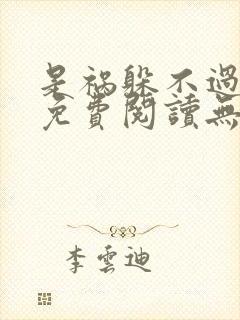 是祸躲不過
免費閱讀無
李雲迪